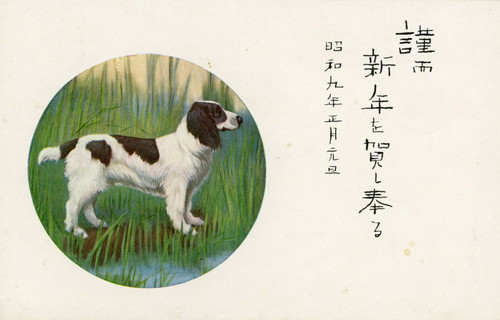 謹而
新年を賀し奉る
昭和九年正月元旦